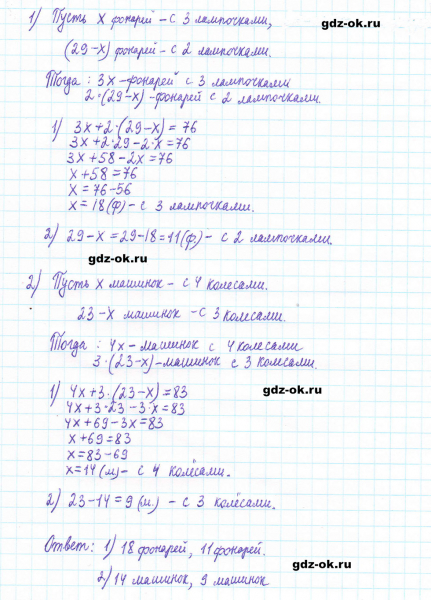 gdz-ok.ru
1) Пусть х фонарей - с 3 лампочками,
(29-х) фонарей - с 2 лампочками.
Тогда: 3х - фонарей с 3 лампочками
2·(29-х) - фонарей с 2 лампочками.
1) 3х+2·(29-х)=76
3х+2·29-2·х=76
3х+58-2х=76
х+58=76
х=76-56
х=18(ф)- с 3 лампочками.
2) 29-х=29-18=11(ф)- с 2 лампочками.
gdz-ok.ru
2) Пусть х машинок - с 4 колесами.
23-х машинок - с 3 колесами.
gdz-ok.ru
Тогда: 4х - машинок с 4 колесами
3·(23-х)-машинок с 3 колесами.
1) 4х+3·(23-х)=83
gdz-ok.ru
4х+3·23-3·х=83
4х+69-3х=83
х+69=83
х=83-69
х=14(м)- с 4 колёсами.
2) 23-14=9(м.) - с 3 колёсами.
Ответ: 1) 18 фонарей, 11 фонарей.
gdz-ok.ru
2) 14 машинок, 9 машинок